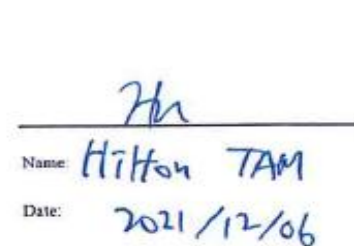 Name: Hilton TAM
Date: 2021/12/06